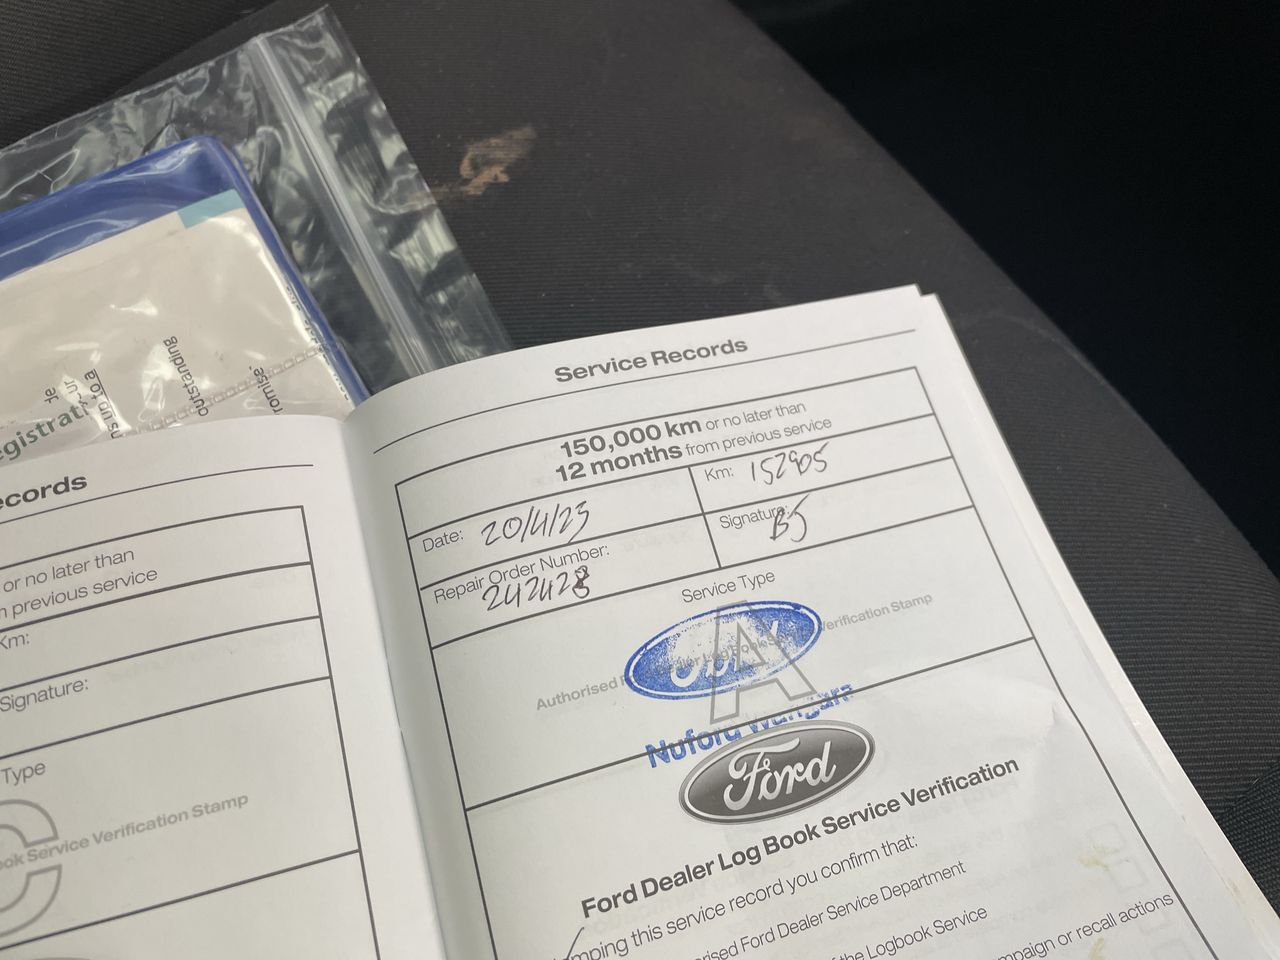 outstanding
romise'
egistrat
ecords
or no later than
previous service
Km:
Signature:
Type
ook Service Verification Stamp
C
Service Records
150,000 km or no later than
12 months from previous service
Date: 20/4/23
Km: 152905
Repair Order Number:
242428
Signature:
BJ
Service Type
A
Authorised Dealer Log Book Service Verification Stamp
Nuford
Ford
Ford Dealer Log Book Service Verification
mping this service record you confirm that:
rised Ford Dealer Service Department
f the Logbook Service
mpaign or recall actions